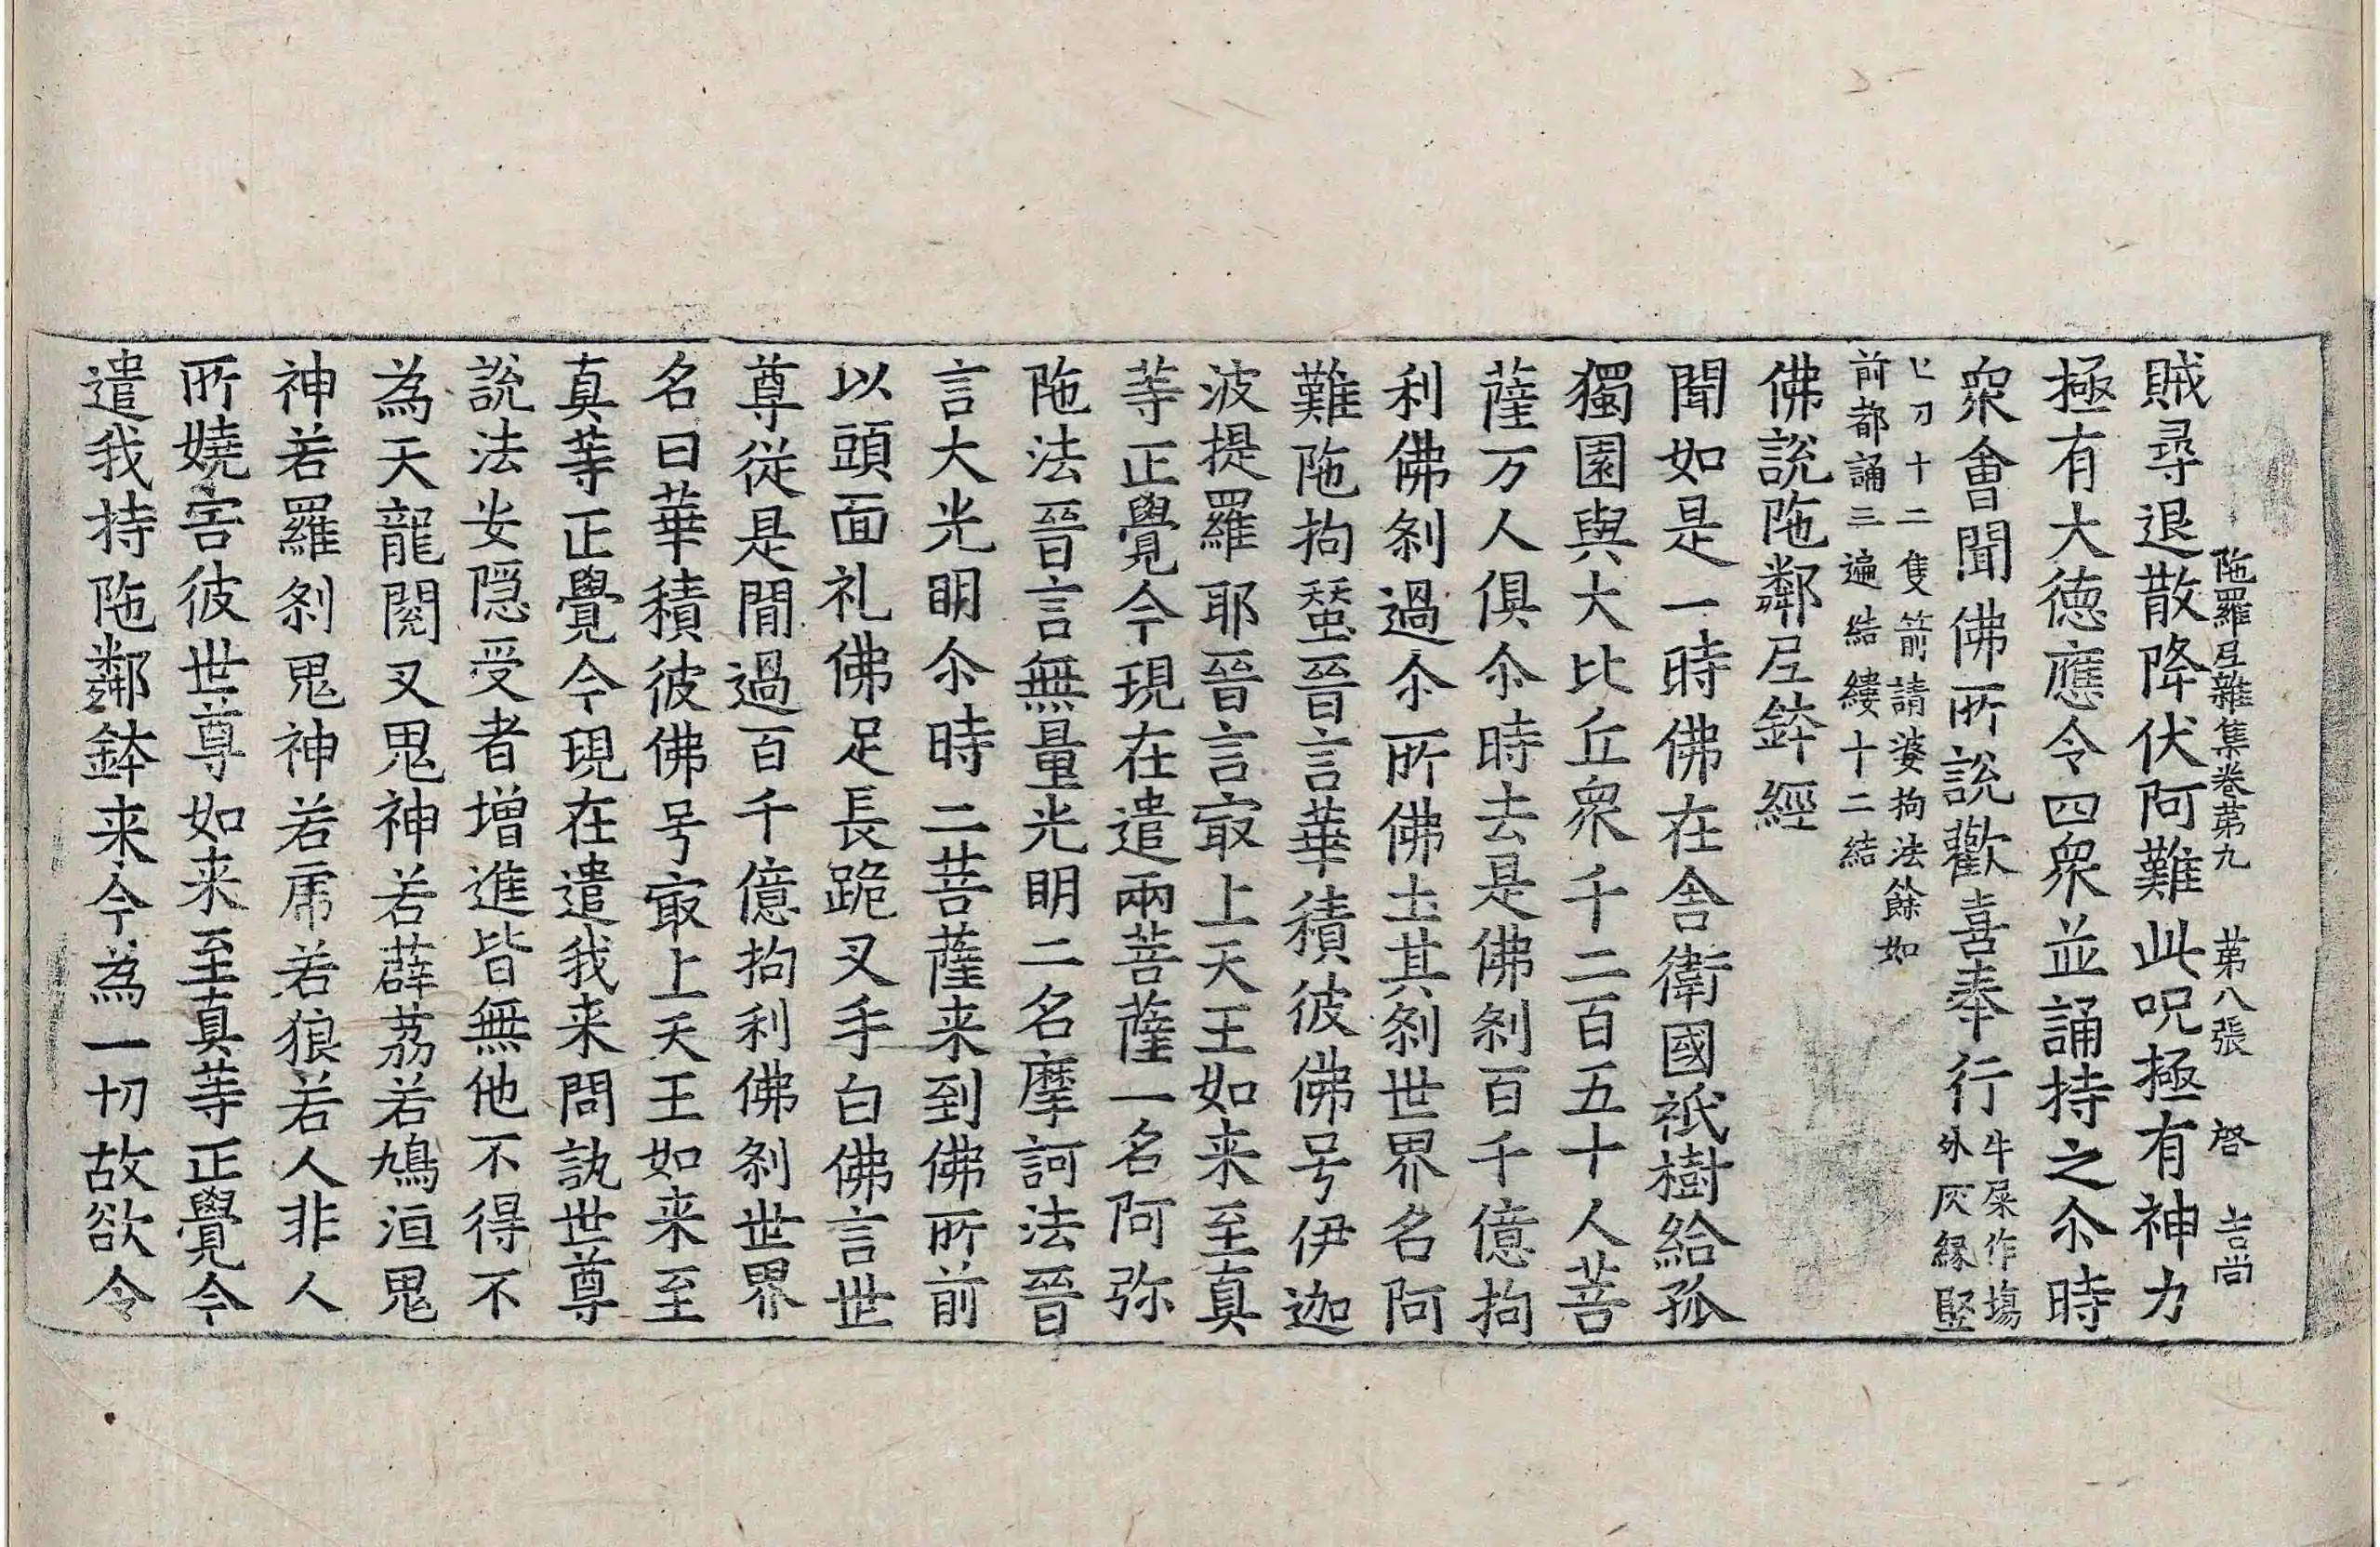 陁羅尼雜集卷苐九 苐八張 啓 吉尚
賊尋退散降伏阿難此呪極有神力
極有大德應令四衆並誦持之尒時
衆會聞佛所說歡喜奉行
牛屎作塲
外灰緣竪
匕刀十二隻箭請婆拘法餘如
前都誦三遍結縷十二結
佛說陁鄰尼鉢經
聞如是一時佛在舍衛國祇樹給孤
獨園與大比丘衆千二百五十人菩
薩万人俱尒時去是佛剎百千億拘
利佛剎過尒所佛土其剎世界名阿
難陁拘蝅晉言華積彼佛号伊迦
波提羅耶晉言冣上天王如来至真
等正覺今現在遣兩菩薩一名阿弥
陁法晉言無量光明二名摩訶法晉
言大光明尒時二菩薩来到佛所前
以頭面礼佛足長跪叉手白佛言世
尊從是間過百千億拘利佛剎世界
名曰華積彼佛号冣上天王如来至
真等正覺今現在遣我来問訊世尊
說法安隱受者增進皆無他不得不
為天龍閱叉鬼神若薜荔若鳩洹鬼
神若羅剎鬼神若虎若狼若人非人
所嬈害彼世尊如来至真等正覺今
遣我持陁鄰鉢来今為一切故欲令